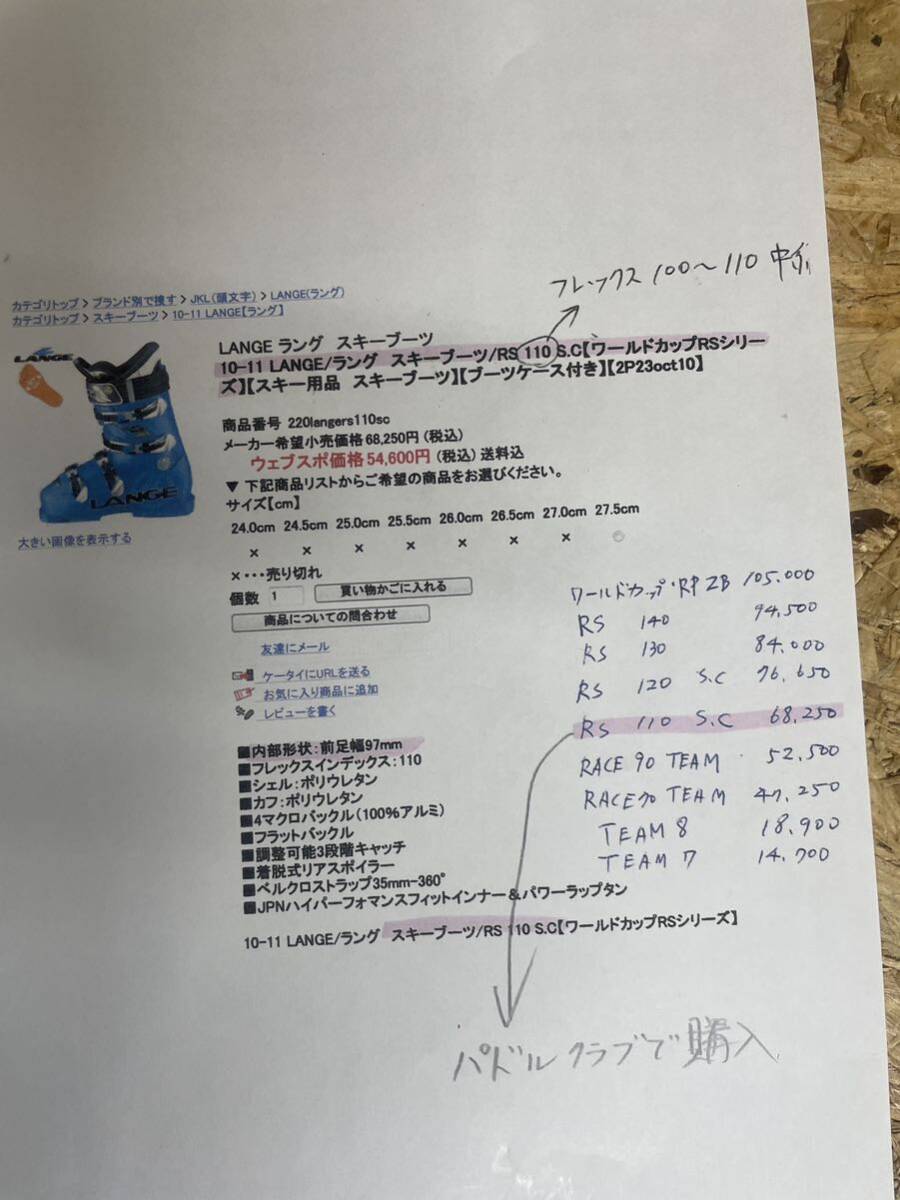 フレックス 100～110 中
カテゴリトップ > ブランド別で捜す > JKL(頭文字) > LANGE(ラング)
カテゴリトップ > スキーブーツ > 10-11 LANGE【ラング】
LANGE
LANGE
大きい画像を表示する
LANGE ラング スキーブーツ
10-11 LANGE/ラング スキーブーツ/RS 110 S.C【ワールドカップRSシリー
ズ】【スキー用品 スキーブーツ】【ブーツケース付き】【2P23oct10】
商品番号 220langers110sc
メーカー希望小売価格 68,250円 (税込)
ウェブスポ価格 54,600円 (税込) 送料込
▼ 下記商品リストからご希望の商品をお選びください。
サイズ【cm】
24.0cm 24.5cm 25.0cm 25.5cm 26.0cm 26.5cm 27.0cm 27.5cm
× × × × × × × ◎
×・・・売り切れ
個数 1 買い物かごに入れる
商品についての問合わせ
友達にメール
ケータイにURLを送る
お気に入り商品に追加
レビューを書く
■内部形状：前足幅97mm
■フレックスインデックス：110
■シェル：ポリウレタン
■カフ：ポリウレタン
■4マクロバックル(100%アルミ)
■フラットバックル
■調整可能3段階キャッチ
■着脱式リアスポイラー
■ベルクロストラップ35mm-360°
■JPNハイパーフォマンスフィットインナー＆パワーラップタン
10-11 LANGE/ラング スキーブーツ/RS 110 S.C【ワールドカップRSシリーズ】
ワールドカップ RP ZB 105.000
RS 140 94,500
RS 130 84.000
RS 120 S.C 76.650
RS 110 S.C 68.250
RACE 90 TEAM 52,500
RACE 70 TEAM 47,250
TEAM 8 18,900
TEAM 7 14.700
パドルクラブで購入